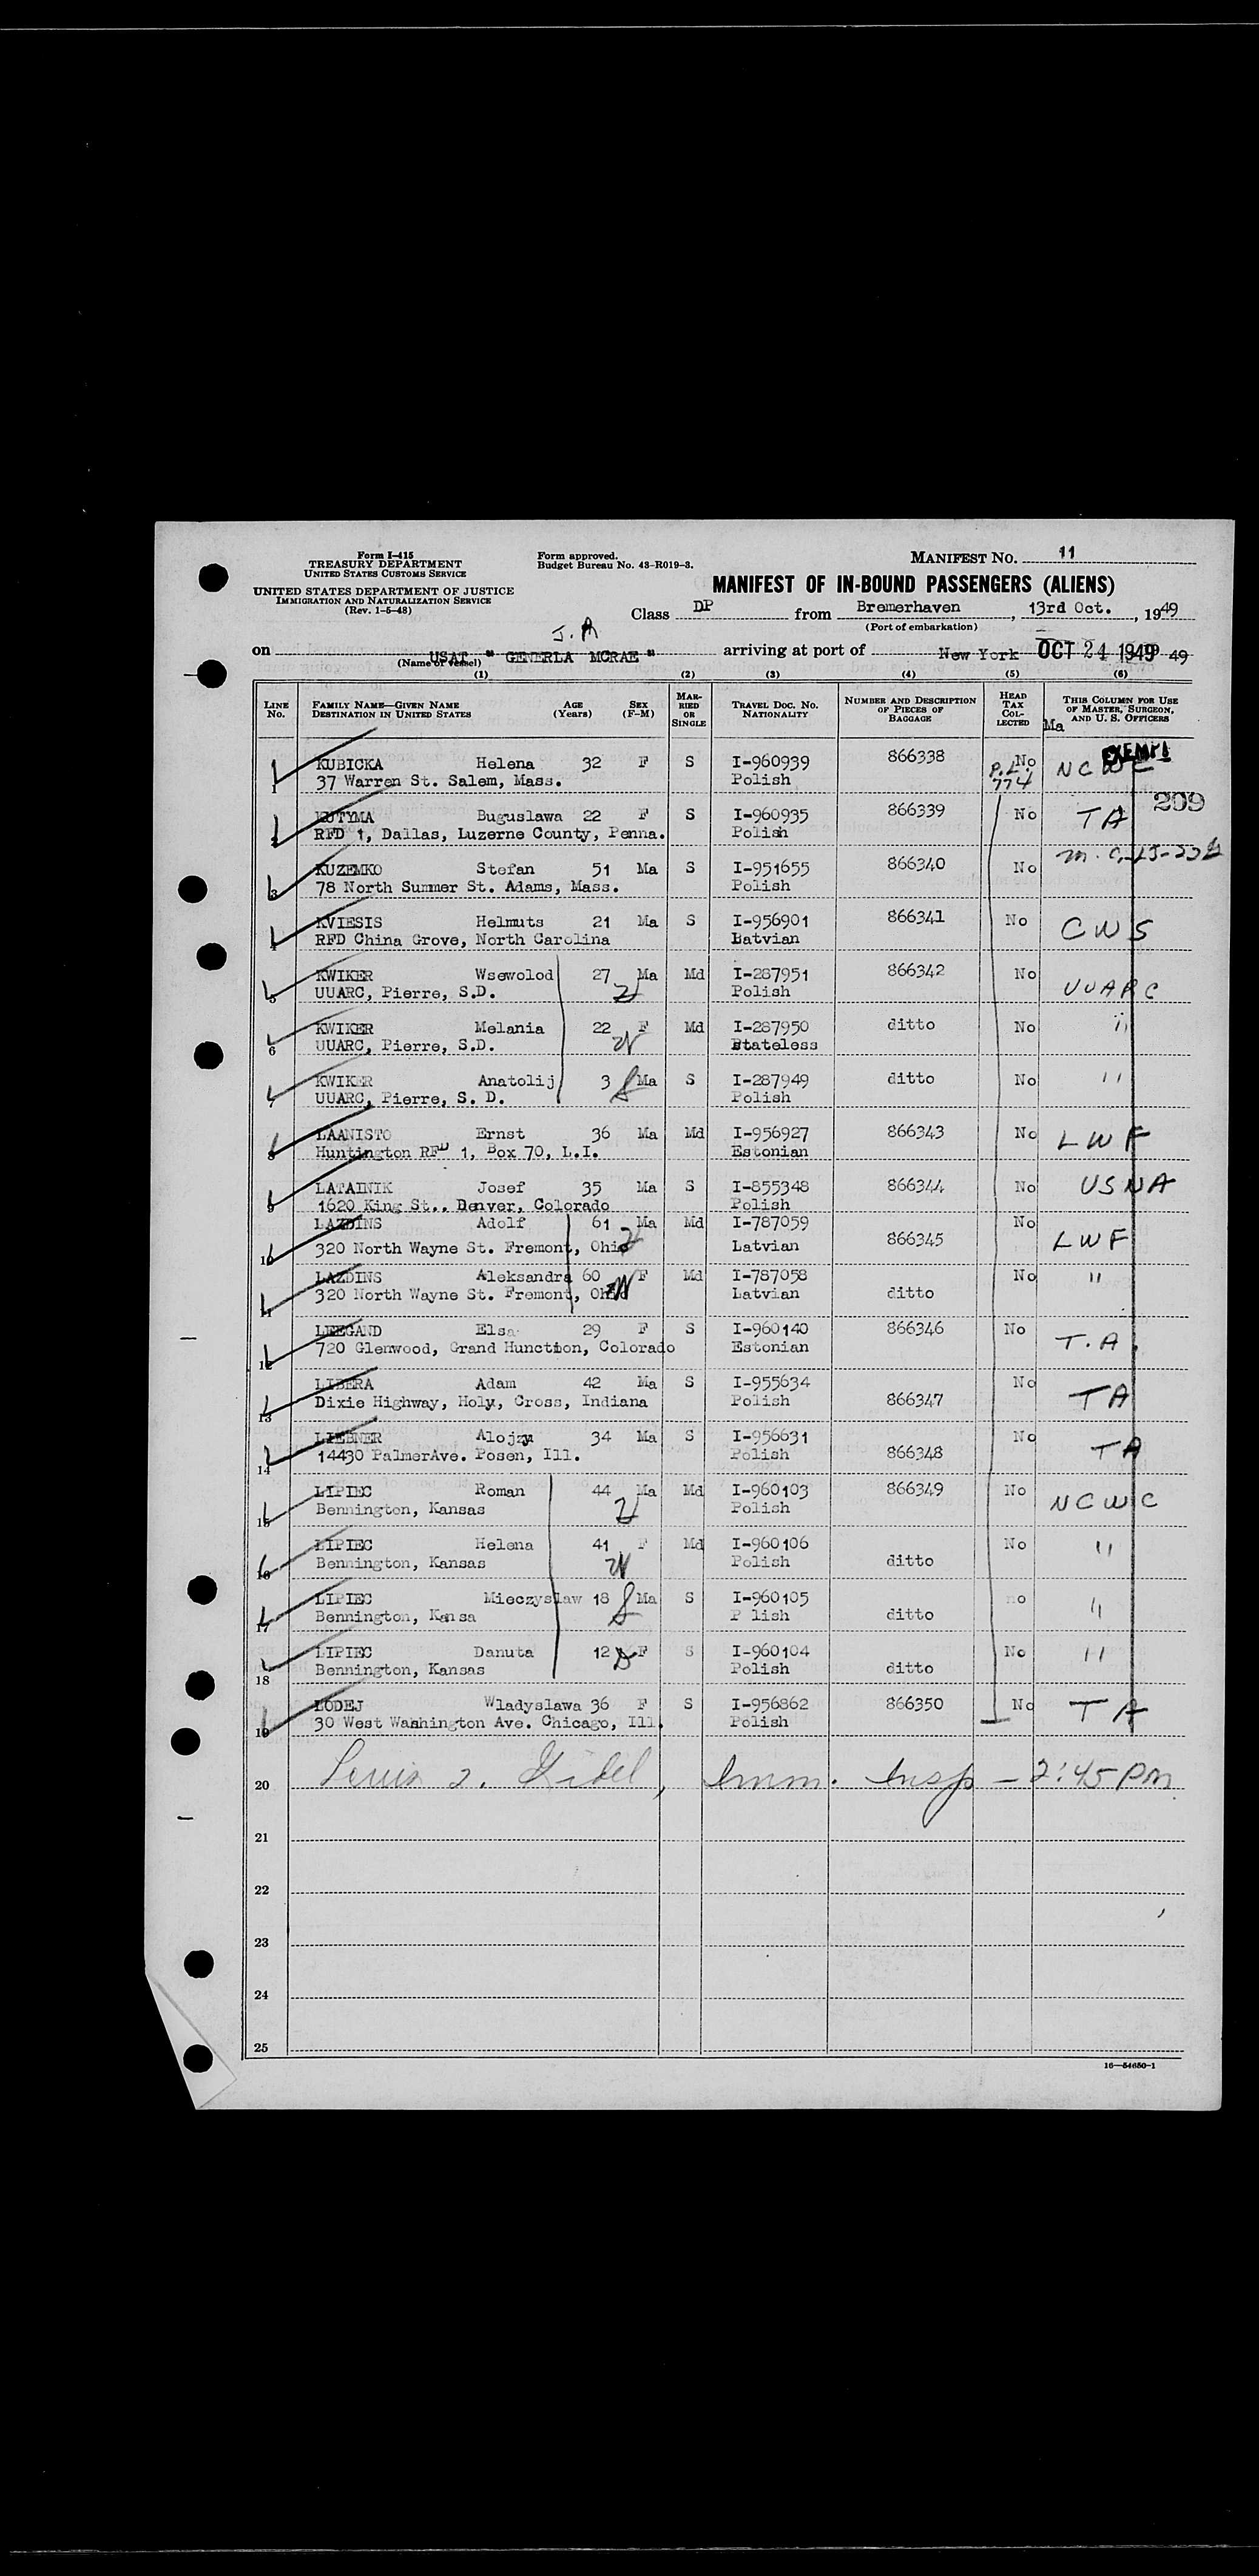 Form I-415
TREASURY DEPARTMENT
UNITED STATES CUSTOMS SERVICE
UNITED STATES DEPARTMENT OF JUSTICE
IMMIGRATION AND NATURALIZATION SERVICE
(Rev. 1-5-48)
Form approved.
Budget Bureau No. 43-R019-3.
MANIFEST NO. 11
MANIFEST OF IN-BOUND PASSENGERS (ALIENS)
Class DP from Bremerhaven, 13rd Oct., 1949
(Port of embarkation)
J. A
on USAT " GENERLA MCRAE " arriving at port of New York OCT 24 1949 49
(Name of vessel)
(1) (2) (3) (4) (5) (6)
LINE NO. FAMILY NAME—GIVEN NAME DESTINATION IN UNITED STATES AGE (Years) SEX (F-M) MARRIED OR SINGLE TRAVEL DOC. NO. NATIONALITY NUMBER AND DESCRIPTION OF PIECES OF BAGGAGE HEAD TAX COLLECTED THIS COLUMN FOR USE OF MASTER, SURGEON, AND U. S. OFFICERS
Ma
EXEMPT
1 KUBICKA Helena 32 F S I-960939 866338 No NCWC
37 Warren St. Salem, Mass. Polish P.L. 774
209
2 KUTYMA Buguslawa 22 F S I-960935 866339 No TA
RFD 1, Dallas, Luzerne County, Penna. Polish
3 KUZEMKO Stefan 51 Ma S I-951655 866340 No
78 North Summer St. Adams, Mass. Polish
4 KVIESIS Helmuts 21 Ma S I-956901 866341 No CWS
RFD China Grove, North Carolina Latvian
5 KWIKER Wsewolod 27 Ma Md I-287951 866342 No UUARC
UUARC, Pierre, S.D. Polish
6 KWIKER Melania 22 F Md I-287950 ditto No "
UUARC, Pierre, S.D. Stateless
7 KWIKER Anatolij 3 Ma S I-287949 ditto No "
UUARC, Pierre, S. D. Polish
8 LAANISTO Ernst 36 Ma Md I-956927 866343 No LWF
Huntington RFD 1, Box 70, L.I. Estonian
9 LATAINIK Josef 35 Ma S I-855348 866344 No USNA
1620 King St., Denver, Colorado Polish
10 LAZDINS Adolf 61 Ma Md I-787059 866345 No LWF
320 North Wayne St. Fremont, Ohio Latvian
11 LAZDINS Aleksandra 60 F Md I-787058 ditto No "
320 North Wayne St. Fremont, Ohio Latvian
12 LEEGAND Elsa 29 F S I-960140 866346 No T.A.
720 Glenwood, Grand Hunction, Colorado Estonian
13 LIBERA Adam 42 Ma S I-955634 866347 No TA
Dixie Highway, Holy, Cross, Indiana Polish
14 LIEBNER Alojzy 34 Ma S I-956631 866348 No TA
14430 PalmerAve. Posen, Ill. Polish
15 LIPIEC Roman 44 Ma Md I-960103 866349 No NCWC
Bennington, Kansas Polish
16 LIPIEC Helena 41 F Md I-960106 ditto No "
Bennington, Kansas Polish
17 LIPIEC Mieczyslaw 18 Ma S I-960105 ditto no "
Bennington, Kansa P lish
18 LIPIEC Danuta 12 F S I-960104 ditto No "
Bennington, Kansas Polish
19 LODEJ Wladyslawa 36 F S I-956862 866350 No TA
30 West Washington Ave. Chicago, Ill. Polish
20 Imm. Insp — 2:45 PM
21
22
23
24
25
16—54650-1